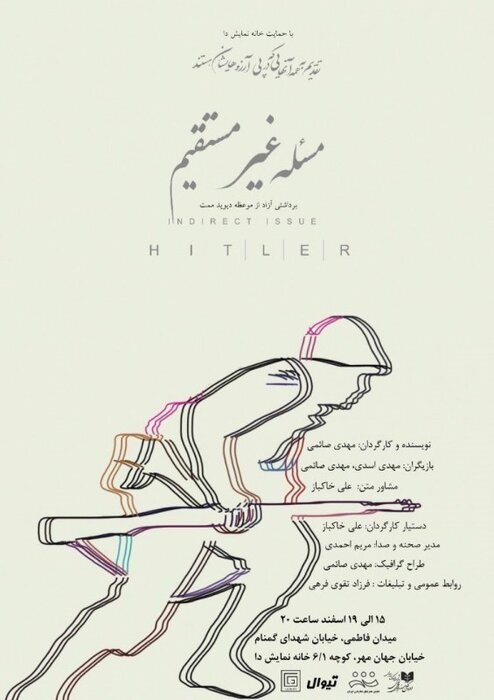 با حمایت خانه نمایش دا
تقدیم به همه آنهایی که در پی آرزوهایشان هستند
مسئله غیر مستقیم
برداشتی آزاد از موعظه دیوید ممت
INDIRECT ISSUE
H I T L E R
نویسنده و کارگردان: مهدی صائمی
بازیگران: مهدی اسدی، مهدی صائمی
مشاور متن: علی خاکباز
دستیار کارگردان: علی خاکباز
مدیر صحنه و صدا: مریم احمدی
طراح گرافیک: مهدی صائمی
روابط عمومی و تبلیغات : فرزاد تقوی فرهی
۱۵ الی ۱۹ اسفند ساعت ۲۰
میدان فاطمی، خیابان شهدای گمنام
خیابان جهان مهر، کوچه ۶/۱ خانه نمایش دا
تیوال